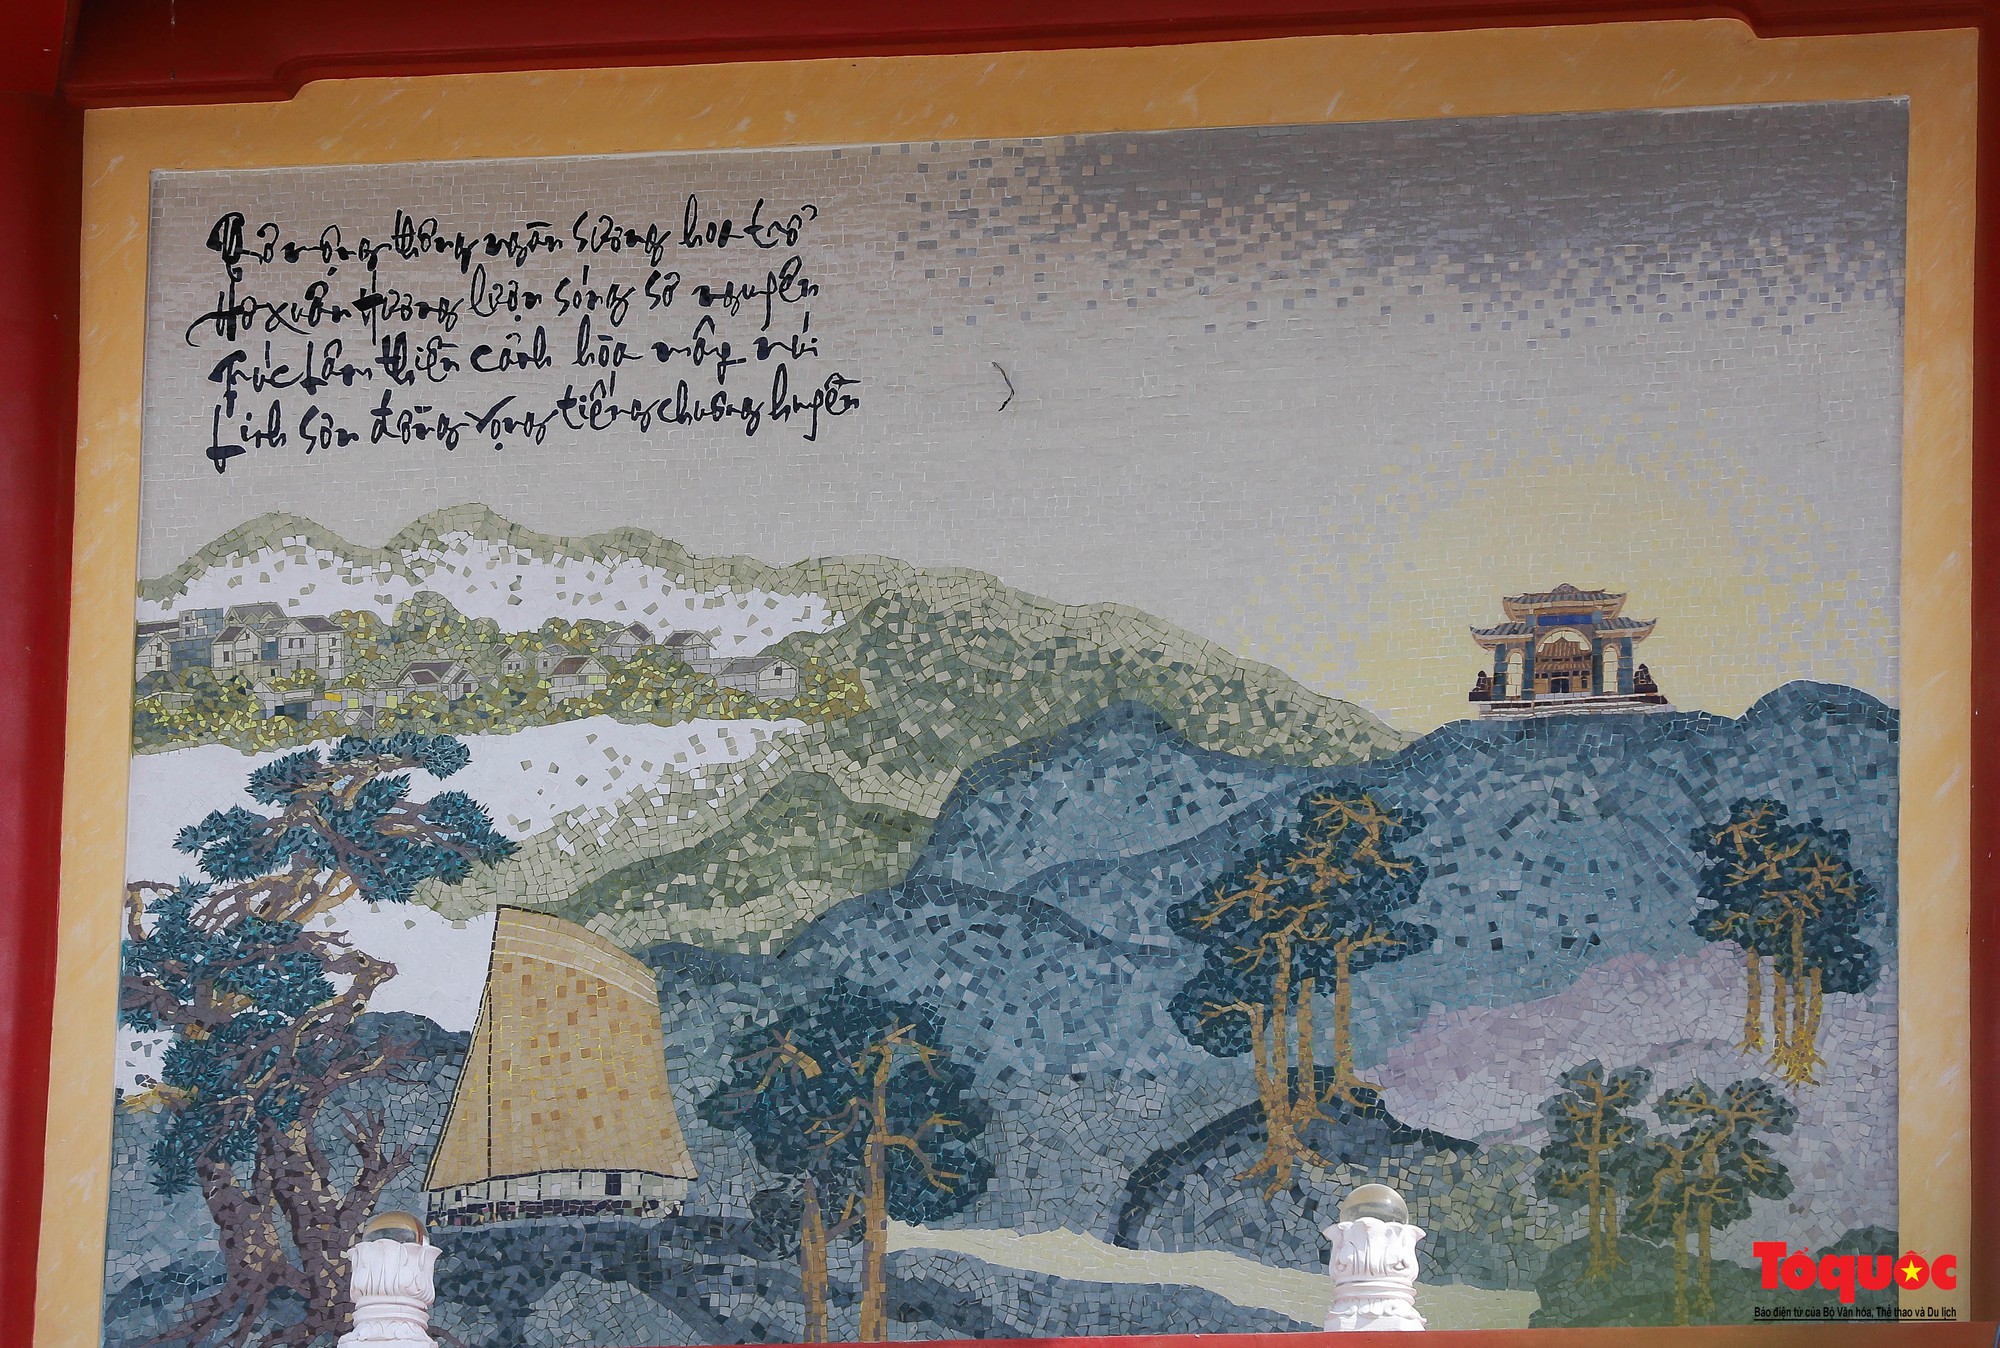 mộng thông ngàn sương hoa trổ
Hồ Xuân Hương lượn sóng sơ nguyên
Trúc Lâm thiền cảnh hòa mây núi
Linh Sơn đồng vọng tiếng chuông huyền
Tổ quốc
Báo điện tử của Bộ Văn hóa, Thể thao và Du lịch